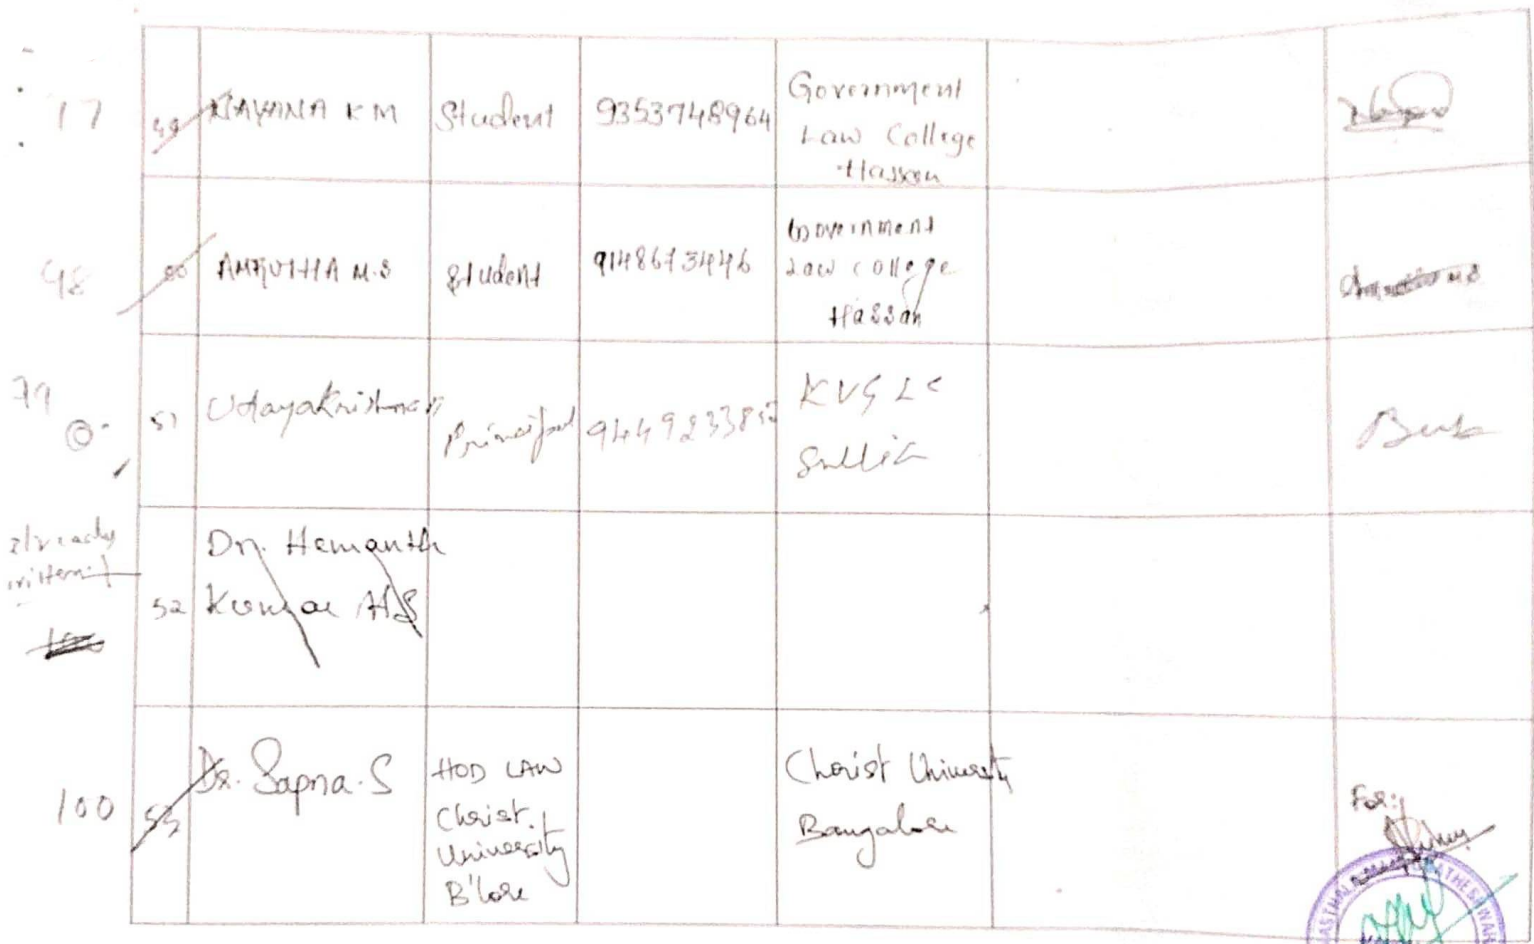 17 49 NAYANA K M Student 9353748964 Government
Law College
Hassan
98 50 AMRUTHA M.S Student 9148673446 Government
Law College
Hassan
79 51 Udayakrishna Principal KVG LC
Sullia
already
written
52 Dr. Hemanth
Kumar H S
100 53 Dr. Sapna. S HOD LAW Christ University
Christ Bangalore
University
B'lore
For: